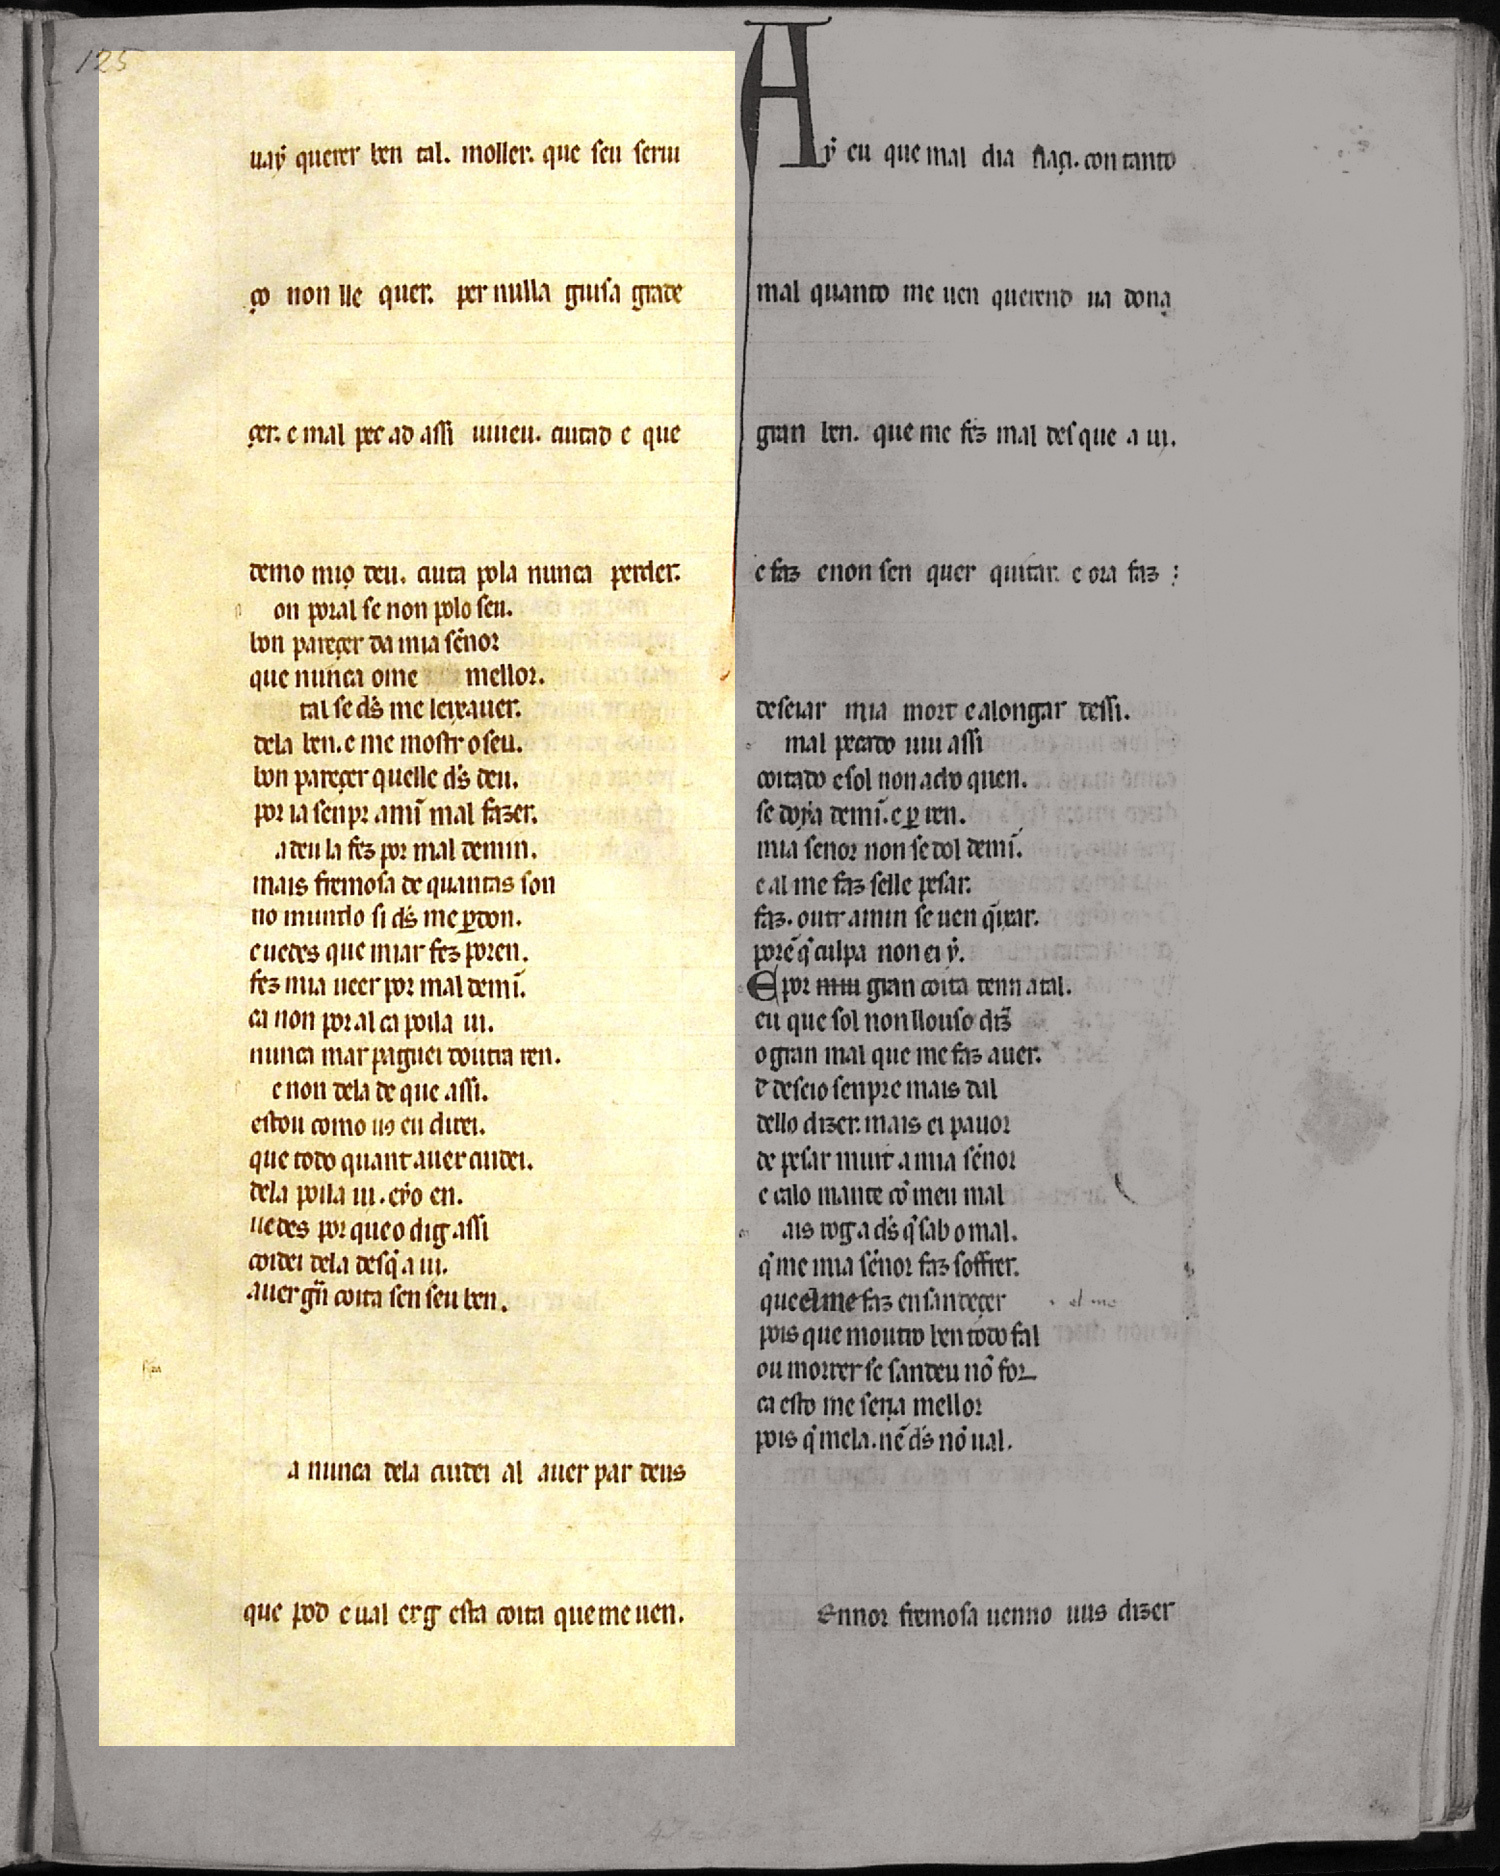 125
uaẏ querer ben tal. moller. que seu serui
ço non lle quer. per nulla guisa grade
çer. e mal pecad assi uiueu. cuitad e que
demo mio deu. cuita pola nunca perder.
ou poral se non polo seu.
bon pareçer da mia señor
que nunca ome mellor.
tal se d̄s me leixauer.
dela ben. e me mostr o seu.
bon pareçer quelle d̄s deu.
por ia senpr amĩ mal fazer.
a deu la fez por mal demin.
mais fremosa de quantas son
no mundo si d̄s me ꝑdon.
e uedes que miar fez poren.
fez mia ueer por mal demĩ.
ca non por al ca poila ui.
nunca mar paguei doutra ren.
e non dela de que assi.
estou como uo eu direi.
que todo quant auer cuidei.
dela poila ui. eyo en.
uedes por que o dig assi
coidei dela desq̃ a ui.
auer grã coita sen seu ben.
a nunca dela cuidei al auer par deus
que pod e ual erg esta coita que me uen.
Aẏ eu que mal dia naçi. con tanto
mal quanto me uen querend ua dona
gran ben. que me fez mal des que a ui.
e faz e non sen quer quitar. e ora faz :
deseiar mia mort e alongar dessi.
mal pecado uiu assi
coitado e sol non acho quen.
se doya demĩ. e ꝑ ren.
mia senor non se dol demĩ.
e al me faz selle pesar.
faz. outr amin se uen q̃ixar.
porẽ q̃ culpa non ei ẏ.
E por gran coita tenn atal.
eu que sol non llouso diz̃
o gran mal que me faz auer.
e deseio senpre mais dal
dello dizer. mais ei pauor
de pesar muit a mia señor
e calo mante cõ meu mal
ais rog a d̄s q̃ sab o mal.
q̃ me mia señor faz soffrer.
que el me faz ensandeçer
el me
pois que moutro ben todo fal
ou morrer se sandeu nõ for
ca esto me seria mellor
pois q̃ mela. nẽ d̄s nõ ual.
Ennor fremosa uenno uus dizer